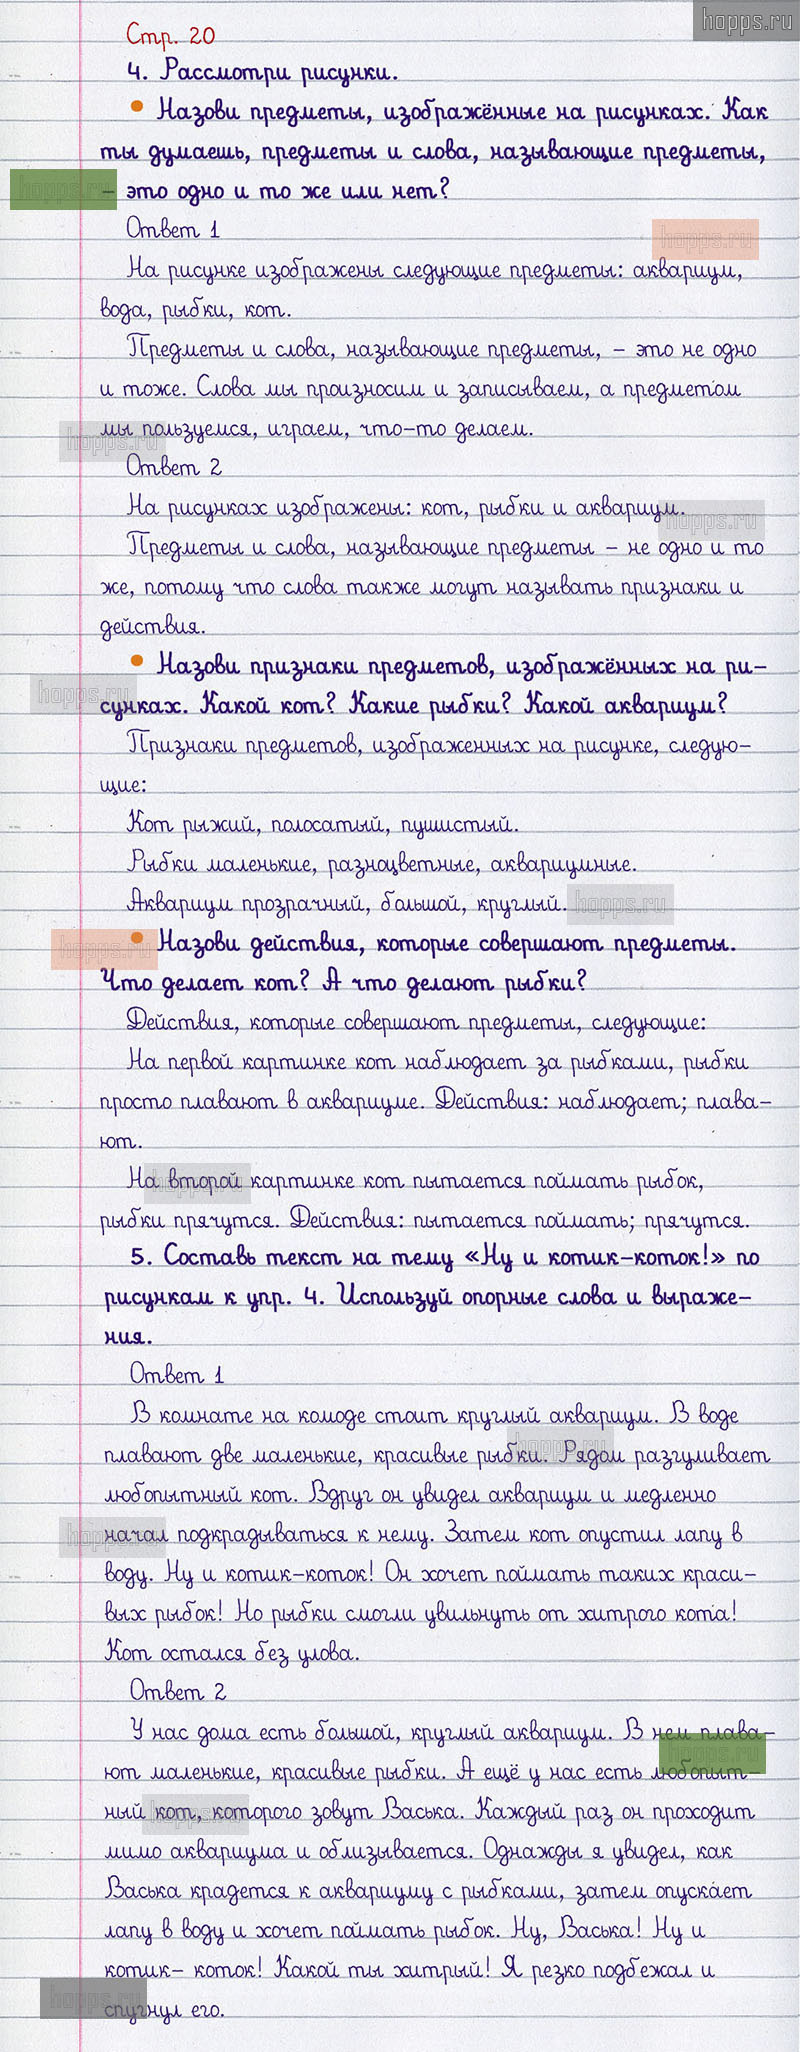 hopps.ru
Стр. 20
4. Рассмотри рисунки.
• Назови предметы, изображённые на рисунках. Как
ты думаешь, предметы и слова, называющие предметы,
– это одно и то же или нет?
hopps.ru
Ответ 1
hopps.ru
На рисунке изображены следующие предметы: аквариум,
вода, рыбки, кот.
Предметы и слова, называющие предметы, – это не одно
и тоже. Слова мы произносим и записываем, а предметом
мы пользуемся, играем, что-то делаем.
hopps.ru
Ответ 2
На рисунках изображены: кот, рыбки и аквариум.
hopps.ru
Предметы и слова, называющие предметы – не одно и то
же, потому что слова также могут называть признаки и
действия.
• Назови признаки предметов, изображённых на ри-
hopps.ru
сунках. Какой кот? Какие рыбки? Какой аквариум?
Признаки предметов, изображенных на рисунке, следую-
щие:
Кот рыжий, полосатый, пушистый.
Рыбки маленькие, разноцветные, аквариумные.
Аквариум прозрачный, большой, круглый.
hopps.ru
• Назови действия, которые совершают предметы.
hopps.ru
Что делает кот? А что делают рыбки?
Действия, которые совершают предметы, следующие:
На первой картинке кот наблюдает за рыбками, рыбки
просто плавают в аквариуме. Действия: наблюдает; плава-
ют.
На второй картинке кот пытается поймать рыбок,
hopps.ru
рыбки прячутся. Действия: пытается поймать; прячутся.
5. Составь текст на тему «Ну и котик-коток!» по
рисункам к упр. 4. Используй опорные слова и выраже-
ния.
Ответ 1
В комнате на комоде стоит круглый аквариум. В воде
плавают две маленькие, красивые рыбки. Рядом разгуливает
hopps.ru
любопытный кот. Вдруг он увидел аквариум и медленно
начал подкрадываться к нему. Затем кот опустил лапу в
hopps.ru
воду. Ну и котик-коток! Он хочет поймать таких краси-
вых рыбок! Но рыбки смогли увильнуть от хитрого кота!
Кот остался без улова.
Ответ 2
У нас дома есть большой, круглый аквариум. В нем плава-
ют маленькие, красивые рыбки. А ещё у нас есть любопыт-
hopps.ru
ный кот, которого зовут Васька. Каждый раз он проходит
hopps.ru
мимо аквариума и облизывается. Однажды я увидел, как
Васька крадется к аквариуму с рыбками, затем опускает
лапу в воду и хочет поймать рыбок. Ну, Васька! Ну и
котик- коток! Какой ты хитрый! Я резко подбежал и
спугнул его.
hopps.ru